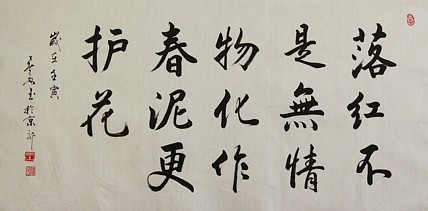 落红不
是無情
物化作
春泥更
护花
歲在壬寅
於京